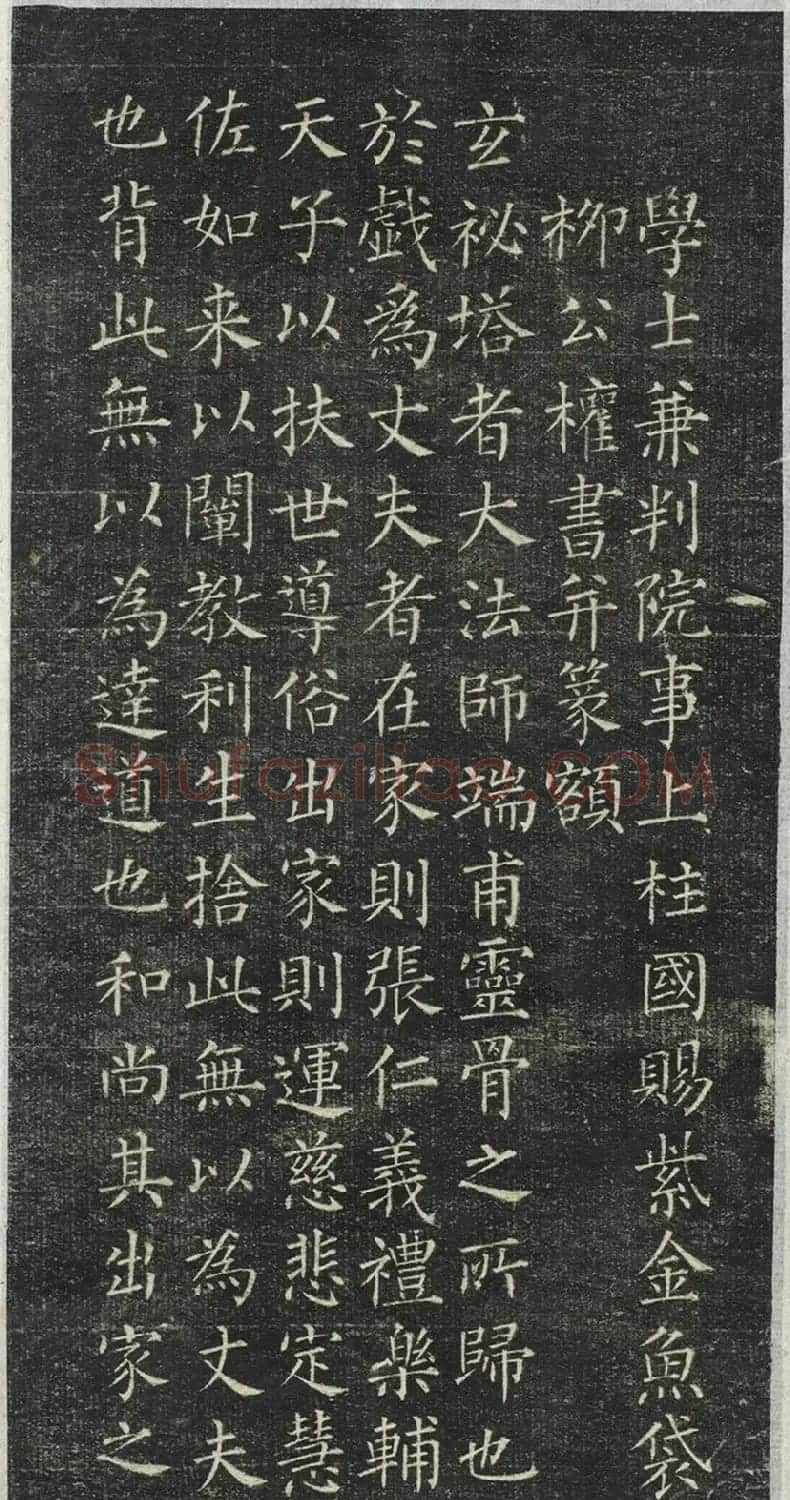 學士兼判院事上柱國賜紫金魚袋
柳公權書并篆額
玄祕塔者大法師端甫靈骨之所歸也
於戲為丈夫者在家則張仁義禮樂輔
天子以扶世導俗出家則運慈悲定慧
佐如来以闡教利生捨此無以為丈夫
也背此無以為達道也和尚其出家之
Shufaziliao.COM